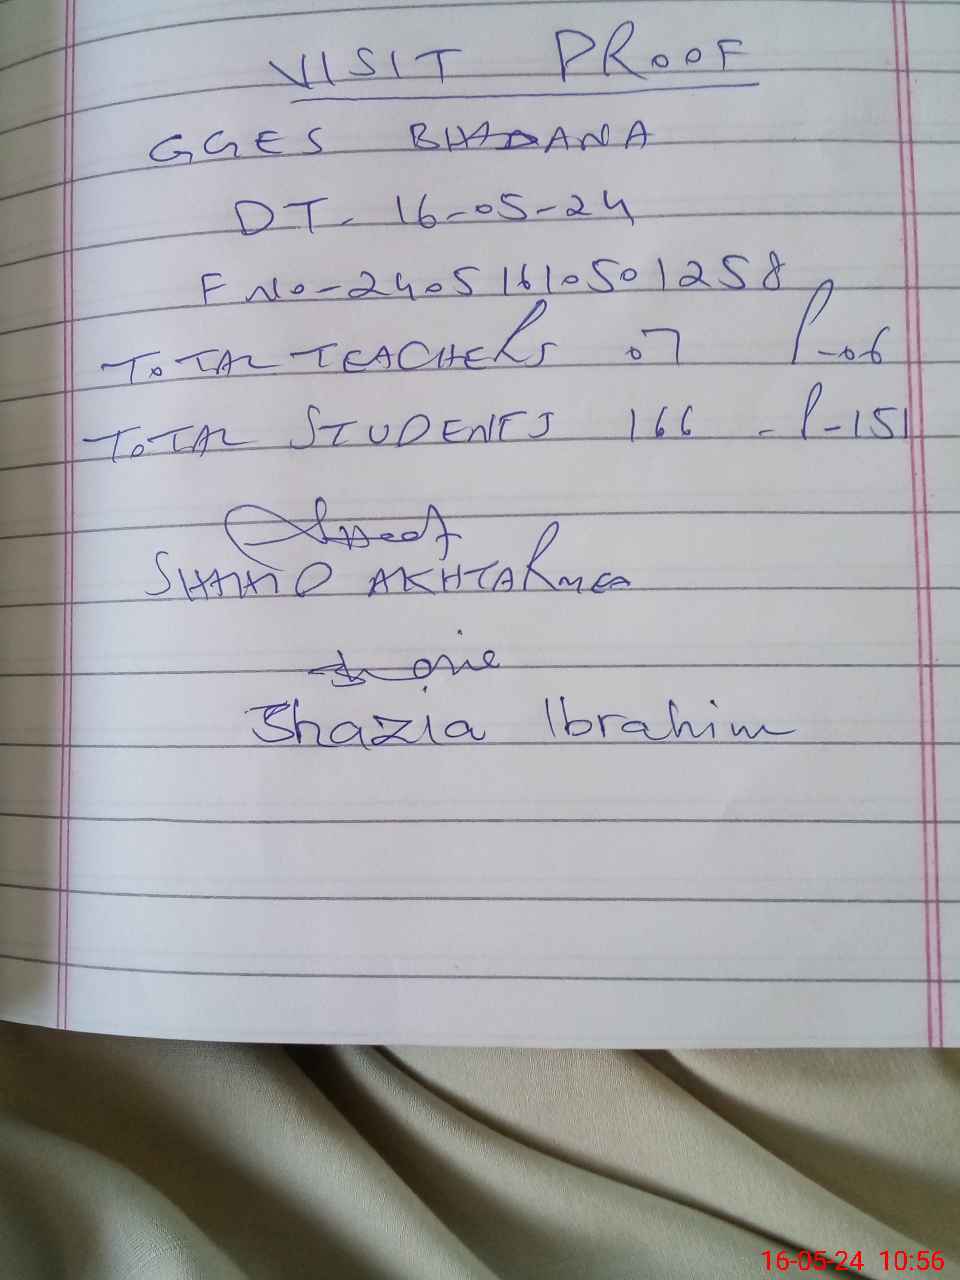 VISIT PROOF
GGES BHADANA
DT- 16-05-24
F No-24051610501258
TOTAL TEACHERS 07 P-06
TOTAL STUDENTS 166 - P-151
SHAHID AKHTAR MEA
Shazia Ibrahim
16-05-24 10:56